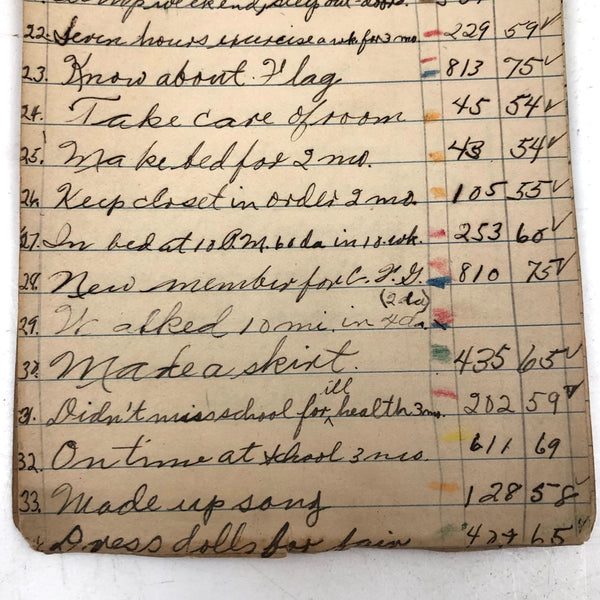 weekend,
22. Seven hours exercise a wk. for 3 mo. 229 59 ✓
23. Know about Flag 813 75 ✓
24. Take care of room 45 54 ✓
25. Make bed for 2 mo. 43 54 ✓
26. Keep closet in order 2 mo. 105 55 ✓
27. In bed at 10 P.M. 60 da in 10 wk. 253 60 ✓
28. New member for C. F. G. 810 75 ✓
(2 da)
29. Walked 10 mi. in 4 da.
30. Made a skirt. 435 65 ✓
ill
31. Didn't miss school for health 3 mo. 202 59 ✓
32. On time at school 3 mo. 611 69
33. Made up song 128 58 ✓
Dress dolls for fair 65 ✓